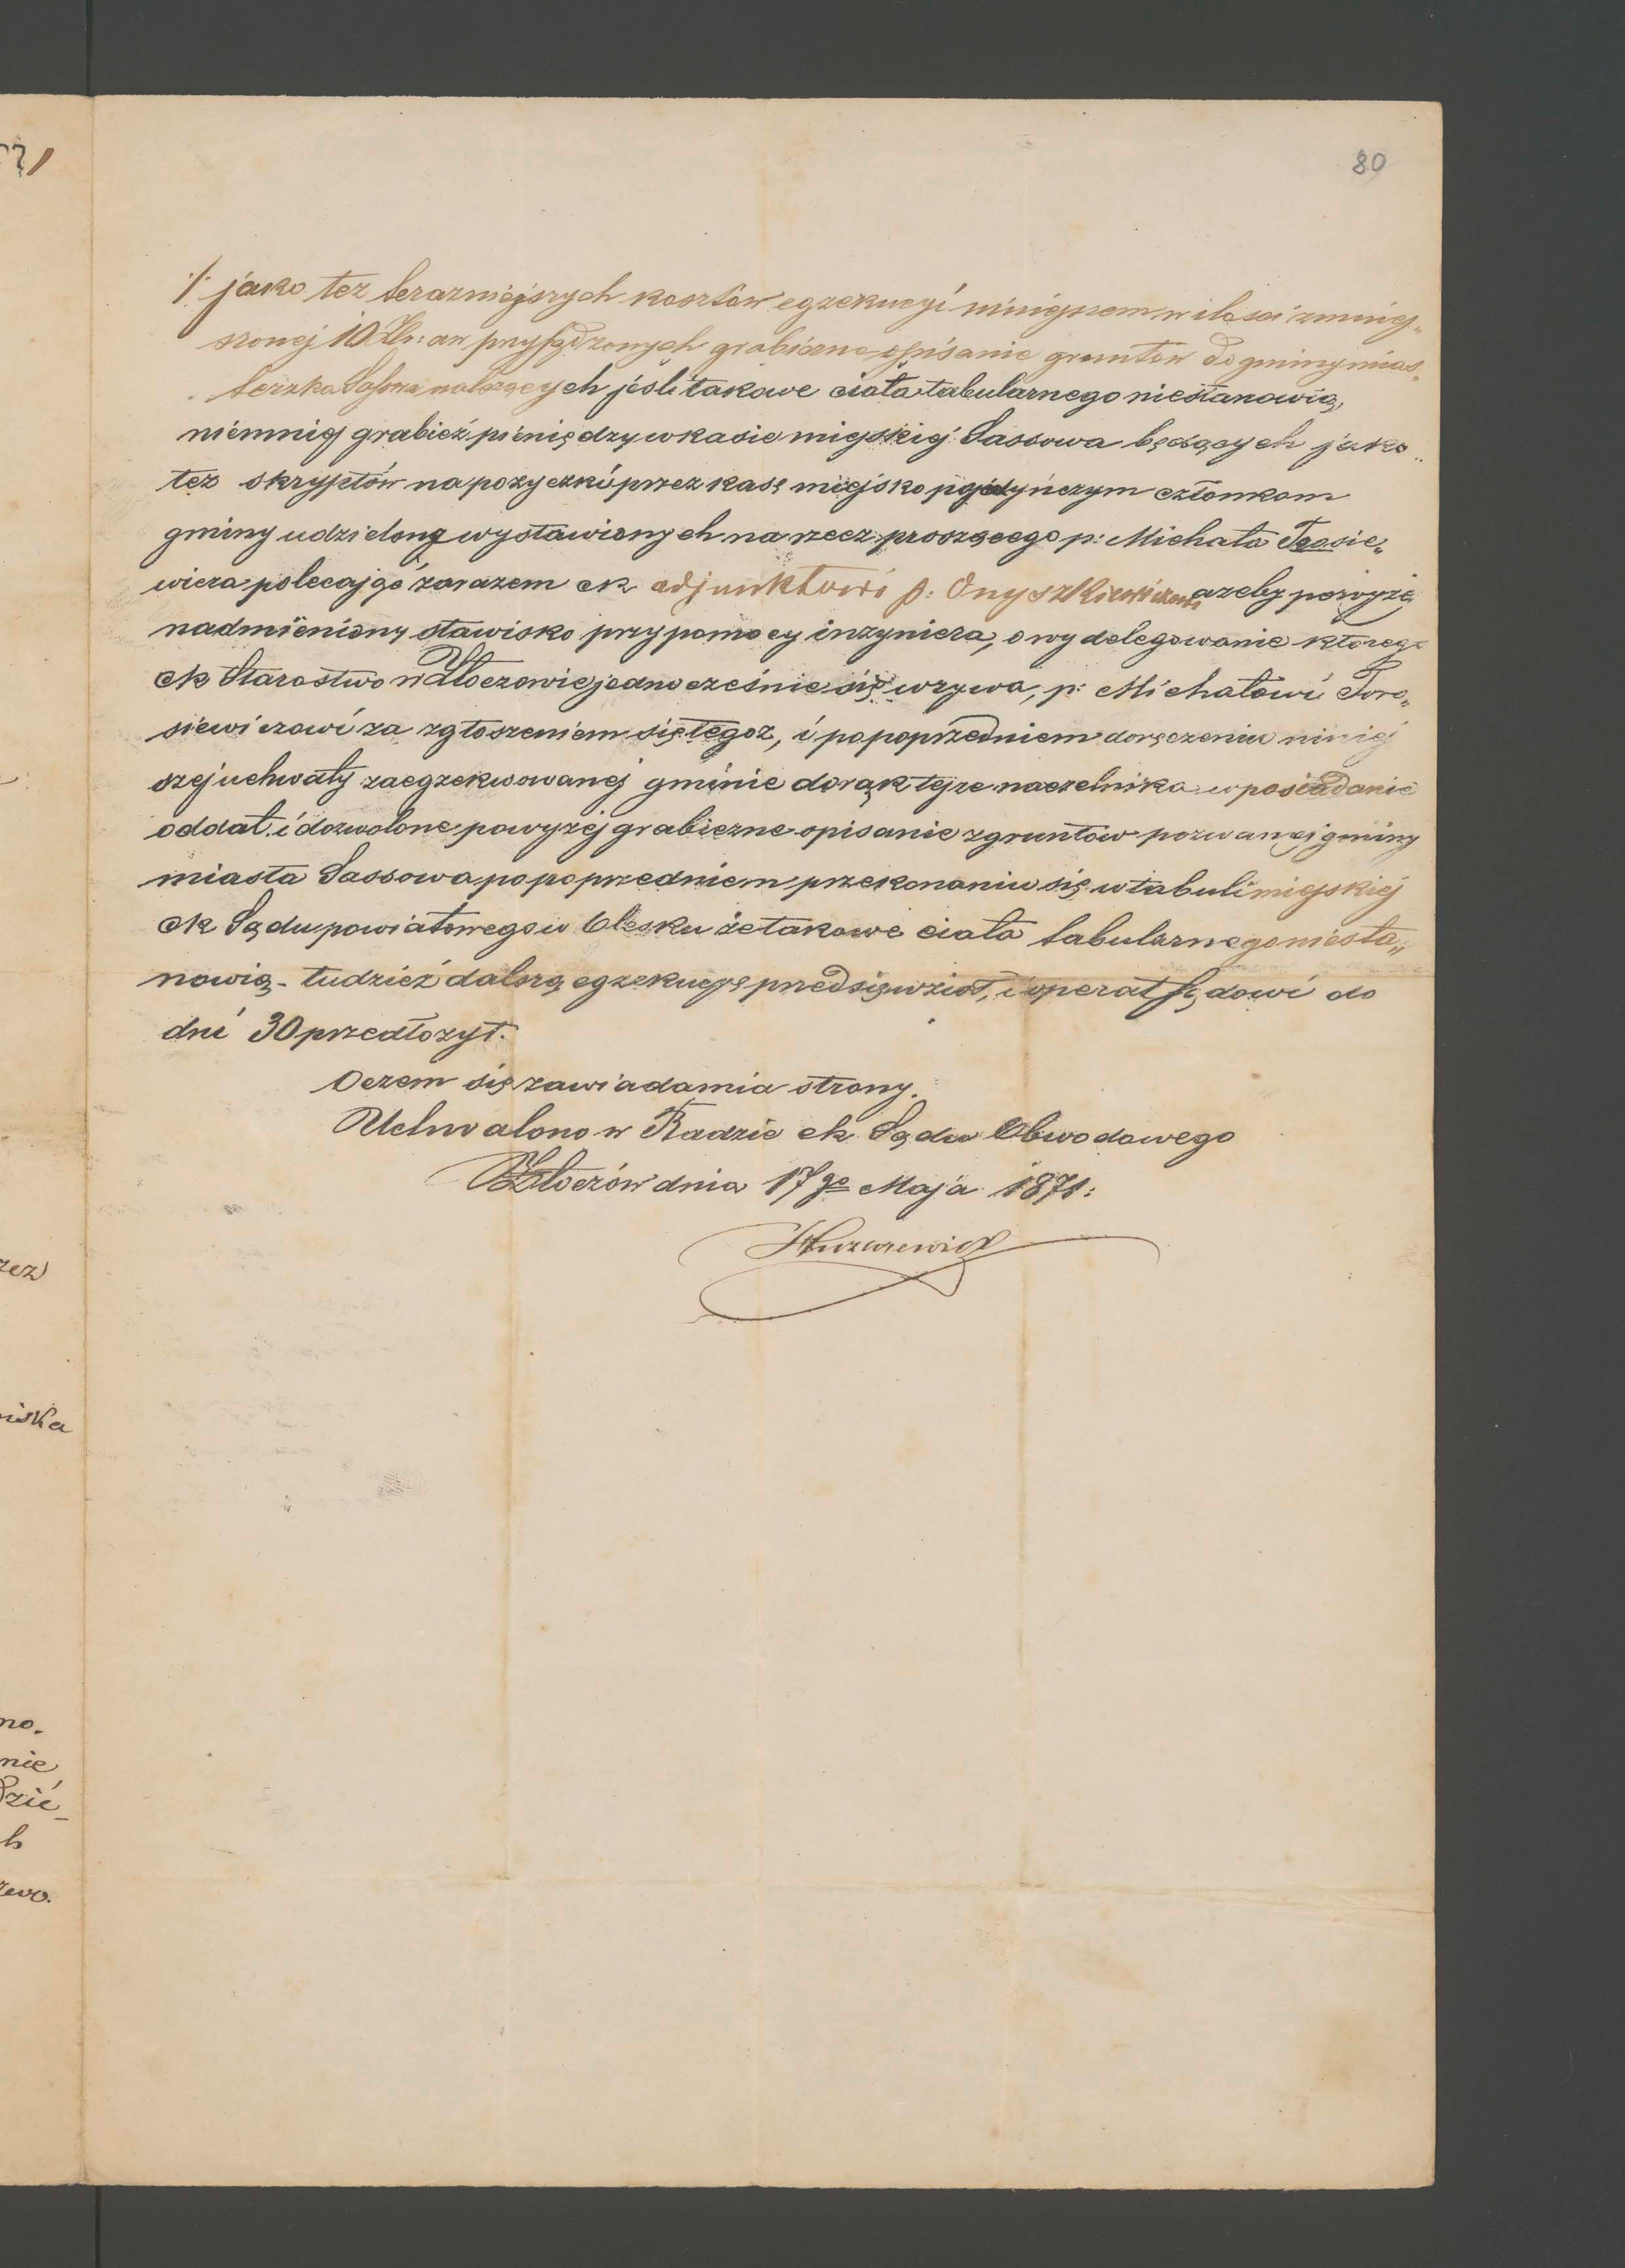 80
./. jako też terazniejszych kosztów egzekucyi niniejszem w ilosci zmniej„
szonej 10 Złr: aw przysądzonych grabiezne opisanie gruntów do gminy mias„
teczka Sassowa należących jeśli takowe ciała tabularnego niestanowią,
niemniej grabież pieniędzy w kasie miejskiej Sassowa będących jako„
też skryptów na pozyczki przez kasę miejsko pojedyńczym członkom
gminy udzielone wystawionych na rzecz proszącego p: Michała Torosie„
wicza polecając zarazem ck adjunktowi p: Onyszkiewiczowi azeby powyżej
nadmieniony stawisko przy pomocy inzyniera, o wydelegowanie którego
ck Starostwo w Złoczowie jednocześnie się wzywa, p: Michałowi Toro„
siewiczowi za zgłoszeniem się tegoz, i po poprzedniem doręczeniu niniej
szej uchwały zaegzekwowanej gminie do rąk tejze naczelnika w posiadanie
oddał i dozwolone powyzej grabiezne opisanie zgruntów pozwanej gminy
miasta Sassowa po poprzedniem przekonaniu się w tabuli miejskiej
ck Sądu powiatowego w Olesku że takowe ciała tabularnego niesta„
nowią - tudzież dalszą egzekucyę przedsięwziął, i operat Sądowi do
dni 30 przedłozył.
Oczem się zawiadamia strony.
Uchwalono w Radzie ck Sądu Obwodowego
Złoczów dnia 17go Maja 1871:
rez
iska
no.
nie
dzié
h